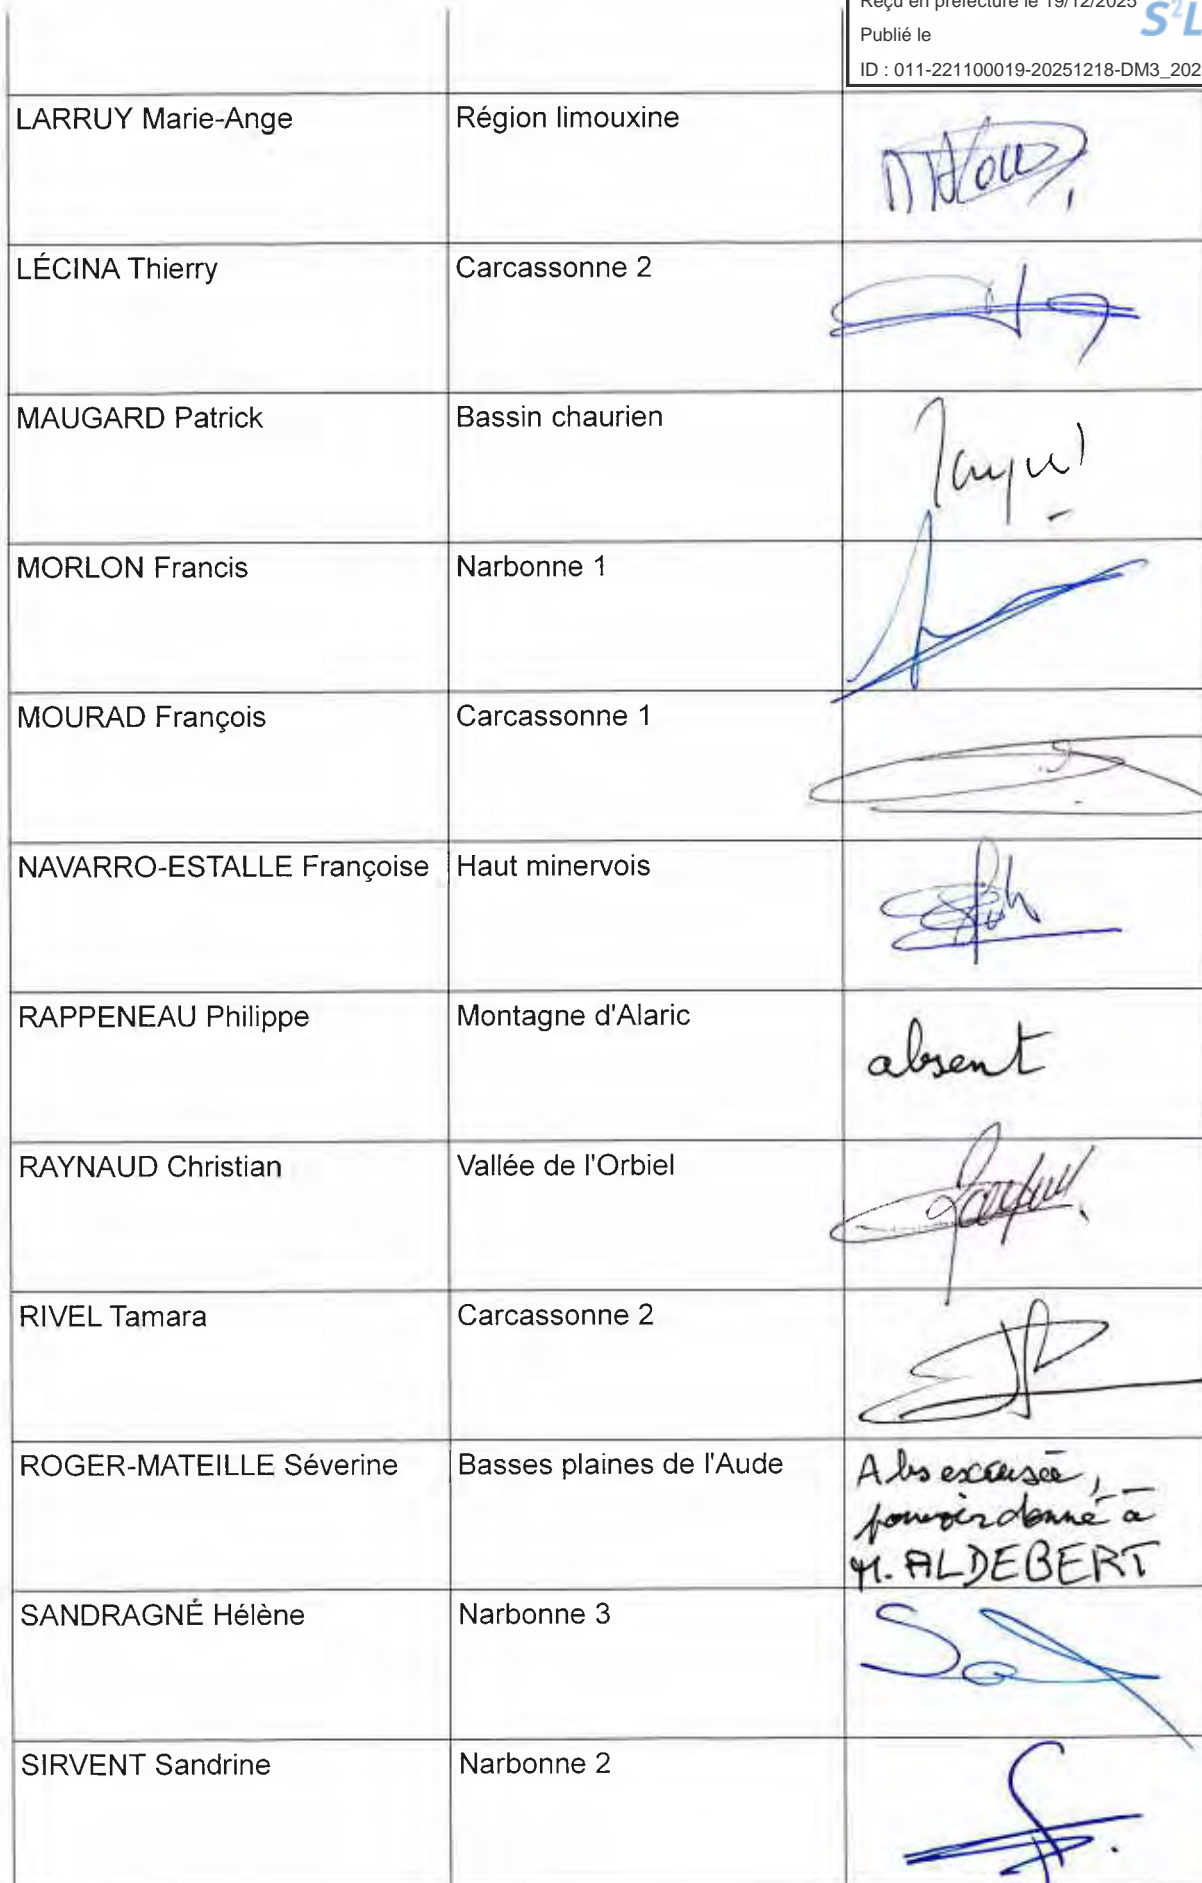 Reçu en préfecture le 19/12/2025
S²L
Publié le
ID : 011-221100019-20251218-DM3_202
LARRUY Marie-Ange Région limouxine
LÉCINA Thierry Carcassonne 2
MAUGARD Patrick Bassin chaurien
MORLON Francis Narbonne 1
MOURAD François Carcassonne 1
NAVARRO-ESTALLE Françoise Haut minervois
RAPPENEAU Philippe Montagne d'Alaric absent
RAYNAUD Christian Vallée de l'Orbiel
RIVEL Tamara Carcassonne 2
ROGER-MATEILLE Séverine Basses plaines de l'Aude Abs excusée,
pouvoir donné à
M. ALDEBERT
SANDRAGNÉ Hélène Narbonne 3
SIRVENT Sandrine Narbonne 2